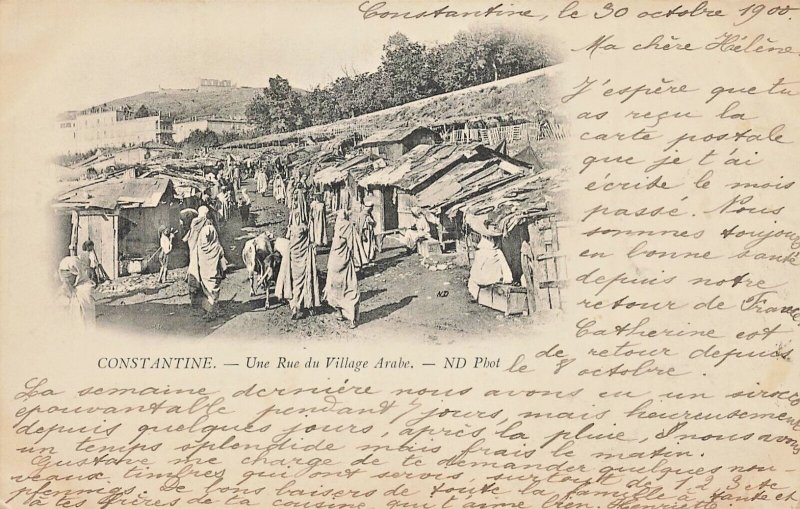 Constantine, le 30 octobre 1900.
Ma chère Hélène.
J'espère que tu
as reçu la
carte postale
que je t'ai
écrite le mois
passé. Nous
sommes toujours
en bonne santé
depuis notre
retour de France
Catherine est
de retour depuis
le 8 octobre.
ND
CONSTANTINE. — Une Rue du Village Arabe. — ND Phot
La semaine dernière nous avons eu un siroco
épouvantable pendant 7 jours, mais heureusement
depuis quelques jours, après la pluie, nous avons
un temps splendide mais frais le matin.
Gustave me charge de te demander quelques nou-
veaux timbres qui ont servis, surtout de 1, 2, 3 etc
pfennigs. De bons baisers de toute la famille à tante et
à tes frères de ta cousine qui t'aime bien. Henriette.